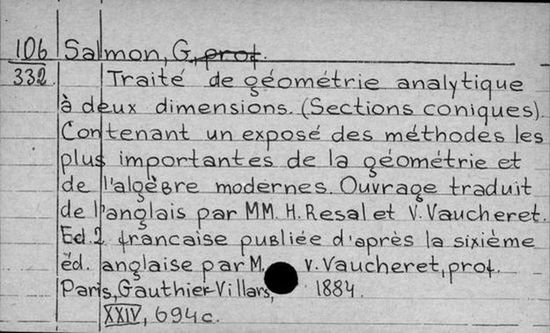 106 Salmon, G. prof.
332. Traité de géométrie analytique
à deux dimensions. (Sections coniques).
Contenant un exposé des méthodes les
plus importantes de la géométrie et
de l'algèbre modernes. Ouvrage traduit
de l'anglais par MM. H. Resal et V. Vaucheret.
Ed. 2 francaise publiée d'après la sixième
éd. anglaise par M. V. Vaucheret, prof.
Paris, Gauthier-Villars, 1884.
XXIV, 694c.